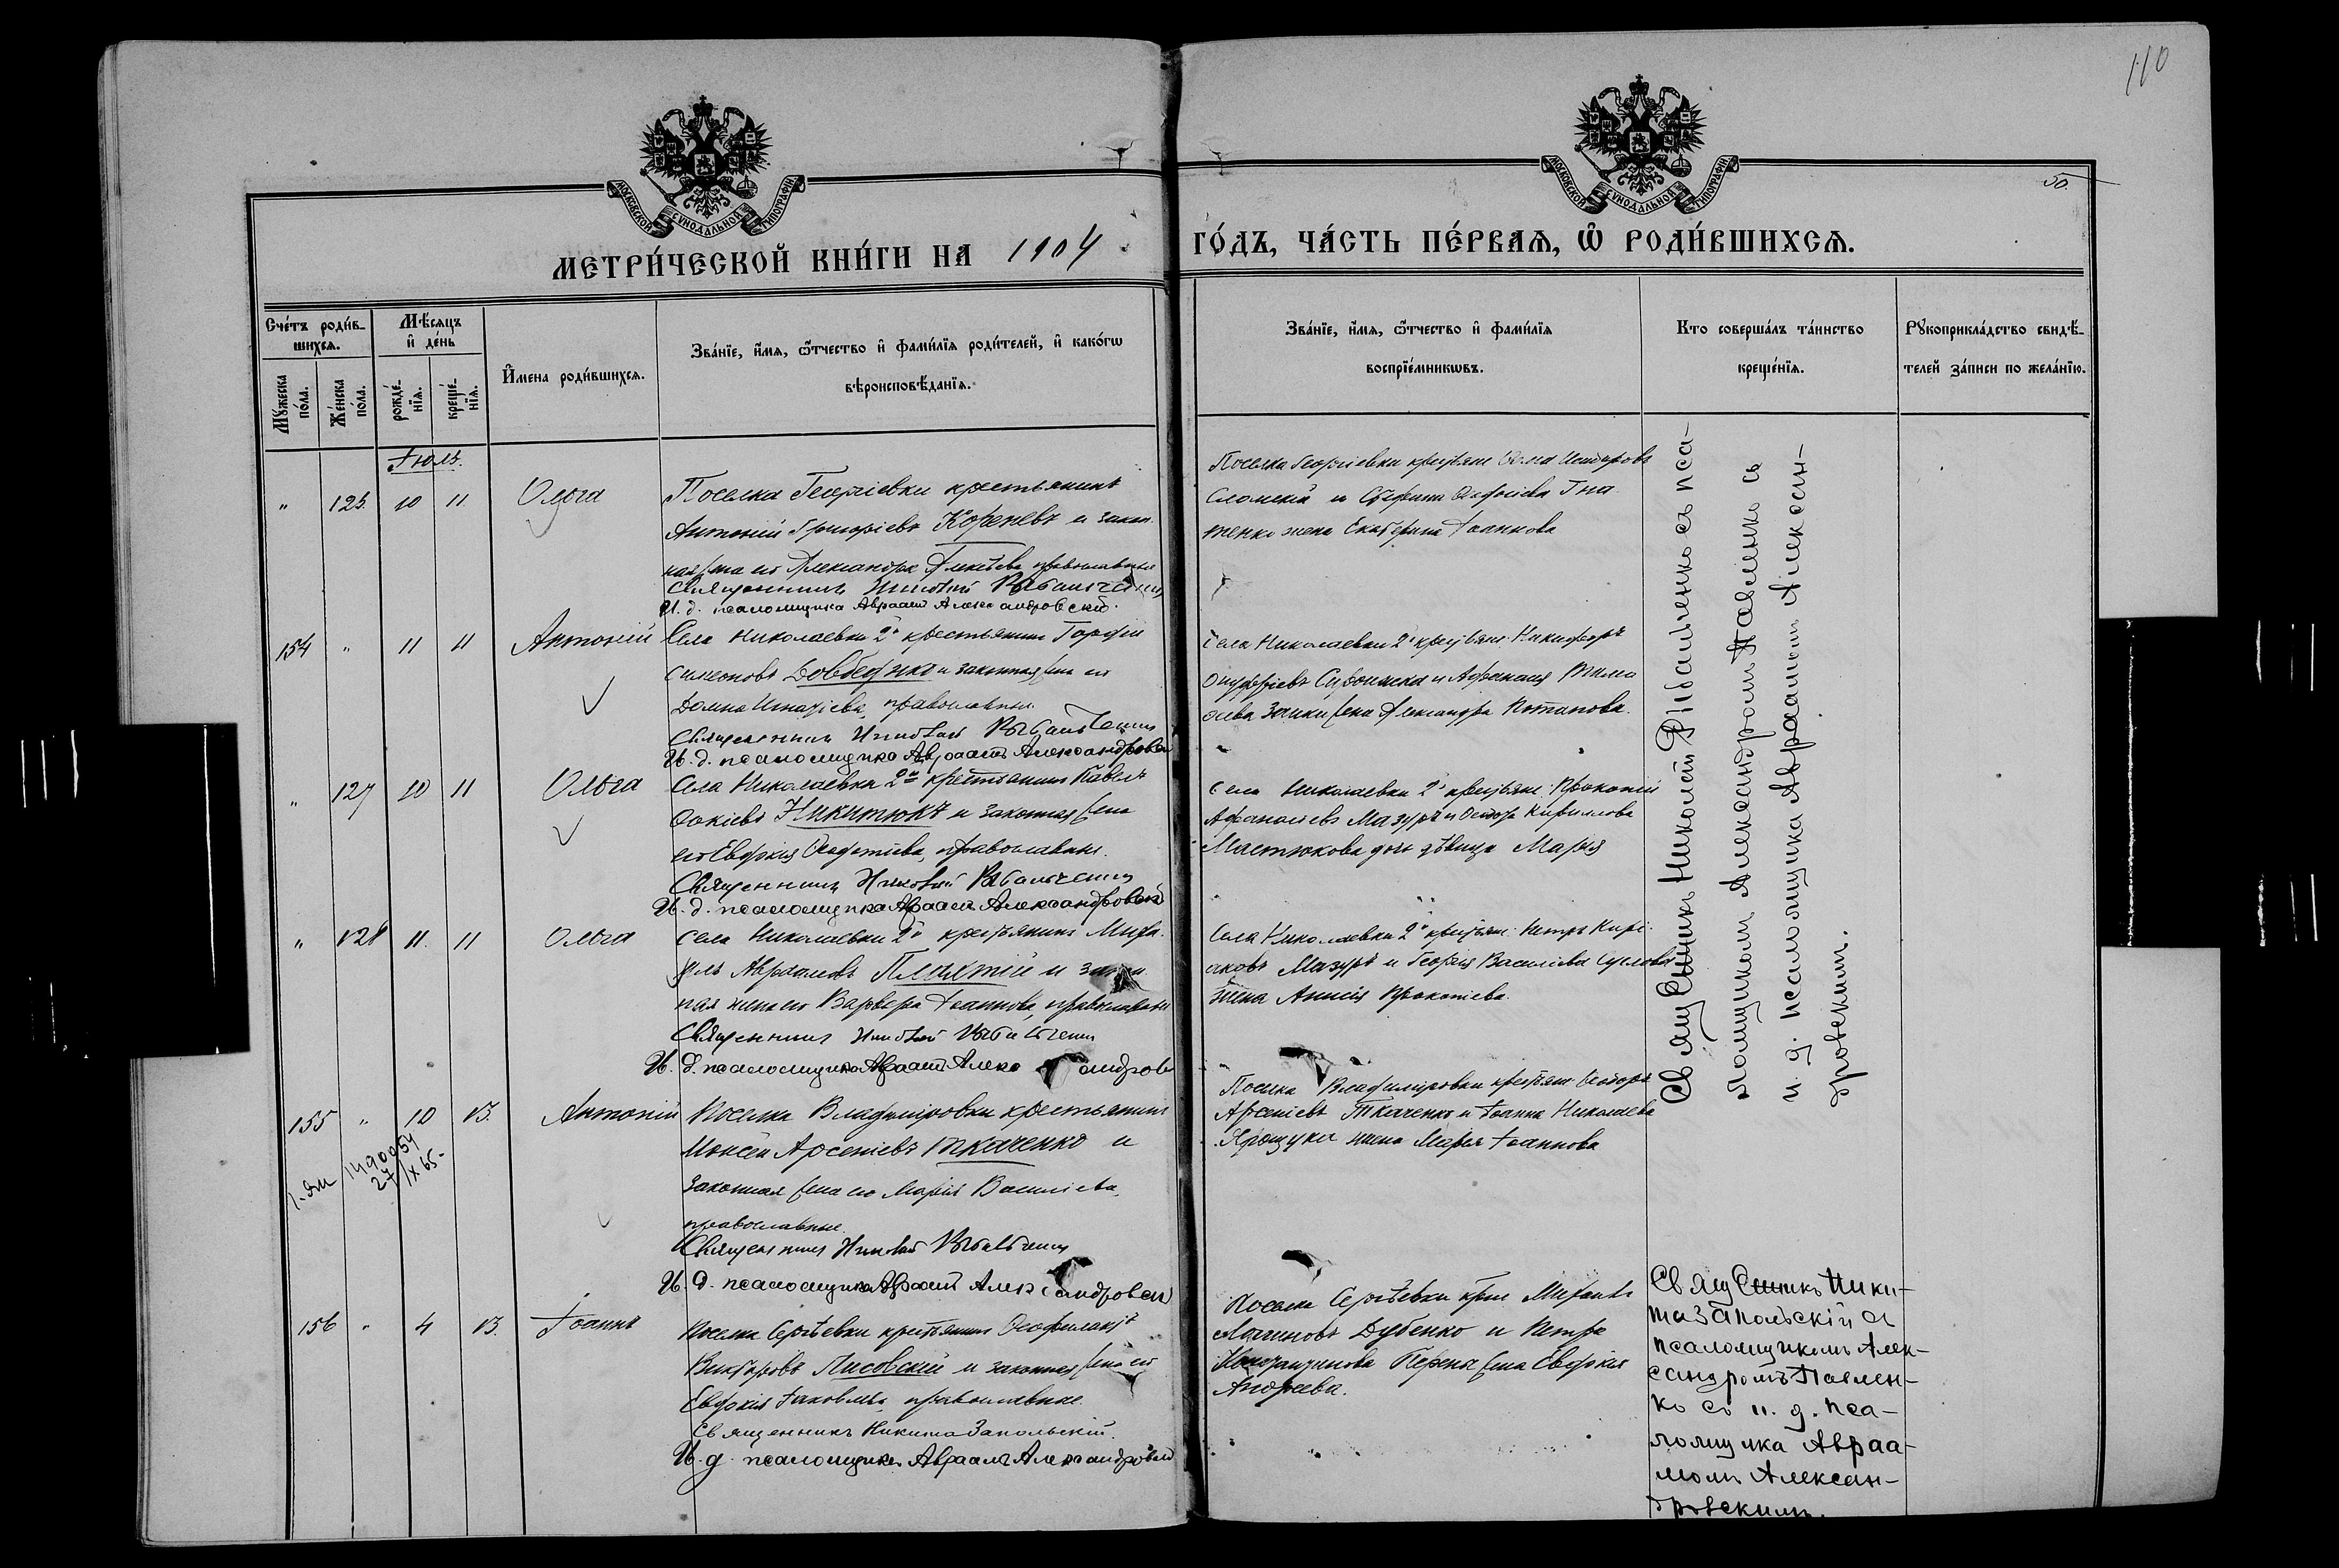 110
50.
МОСКОВСКОЙ СѴНОДАЛЬНОЙ ТИПОГРАФІИ
МОСКОВСКОЙ СѴНОДАЛЬНОЙ ТИПОГРАФІИ
МЕТРИ́ЧЕСКОЙ КНИ́ГИ НА 1904
ГО́ДЪ, ЧА́СТЬ ПЕ́РВАѦ, Ѿ РОДИ́ВШИХСѦ.
Сче́тъ роди́в-
шихсѧ.
Мѣ́сѧцъ
и҆ де́нь
Мꙋ́жеска по́ла.
Же́нска по́ла.
рожде́-
нїѧ.
креще́-
нїѧ.
И҆мена роди́вшихсѧ.
Зва́нїе, и҆́мѧ, ѻ҆́тчество и҆ фами́лїѧ роди́телей, и҆ како́гѡ
вѣроисповѣ́данїѧ.
Зва́нїе, и҆́мѧ, ѻ҆́тчество и҆ фами́лїѧ
воспрїе́мникѡвъ.
Кто соверша́лъ та́инство
креще́нїѧ.
Рꙋкоприкла́дство свидѣ́-
телей за́писи по жела́нїю.
Іюль.
" 125. 10 11. Ольга
Поселка Георгіевки крестьянинъ
Антоній Григоріевъ Кореневъ и закон
ная жена его Александра Алексѣева православные
Священникъ Николай Рыбальченко
И. д. псаломщика Авраамъ Александровскій.
Поселка Георгіевки крестьяне
Сломскій и
тенко жена Екатерина Іоаннова
154 " 11 11 Антоній
Села Николаевки 2й крестьянинъ Гордій
Симеоновъ Довбенко и законная жена его
Домна Игнатіева, православные
Священникъ Николай Рыбальченко
И. д. псаломщика Авраамъ Александровскій
Села Николаевки 2й крестьяне: Никифоръ
Онуфріевъ и Афанасія
жена Александра Потапова.
" 127 10 11 Ольга
Села Николаевки 2й крестьянинъ Павелъ
Фокіевъ Никитюкъ и законная жена
его Евфокія православные.
Священникъ Николай Рыбальченко
И. д. псаломщика Авраамъ Александровскій
Села Николаевки 2й крестьяне: Прокопій
Афанасіевъ Мазуръ и Кириллова
Мастюкова дочь дѣвица Марія
" 128 11. 11 Ольга
Села Николаевки 2й крестьянинъ Миха
илъ Авраамовъ Пляхтій и закон
ная жена его Варвара Іоаннова, православные
Священникъ Николай Рыбальченко
И. д. псаломщика Авраамъ Александровс
Села Николаевки 2й крестьяне: Петръ Кирі
аковъ Мазуръ и Георгія Василіева
жена Анисія Прокопіева.
155 " 10 13. Антоній
1490054
27/IX 65-
Поселка Владиміровки крестьянинъ
Моисей Арсеніевъ Ткаченко и
законная жена его Марія Василіева,
православные.
Священникъ Николай Рыбальченко
И. д. псаломщика Авраамъ Александровскій
Поселка Владиміровки крестьяне Ѳеодоръ
Арсеніевъ Ткаченко и Іоанна Николаева
Ярощука жена Марія Іоаннова
156 " 4 13. Іоаннъ
Поселка Сергѣевки крестьянинъ Ѳеофилактъ
Викторовъ Лисовскій и законная жена его
Евфокія Іаковлева, православные.
Священникъ Никита Запольскій.
И. д. псаломщика Авраамъ Александровскій
Поселка Сергѣевки крест Михаилъ
Логиновъ Дубенко и Петра
жена Евфокія
Андреева.
Священникъ Николай Рыбальченко съ пса-
ломщикомъ Александромъ Павленко и
и. д. псаломщика Авраамомъ Алексан-
дровскимъ.
Священникъ Ники-
та Запольскій съ
псаломщикомъ Алек-
сандромъ Павлен-
ко съ и. д. пса-
ломщика Авраа-
момъ Алексан-
дровскимъ.